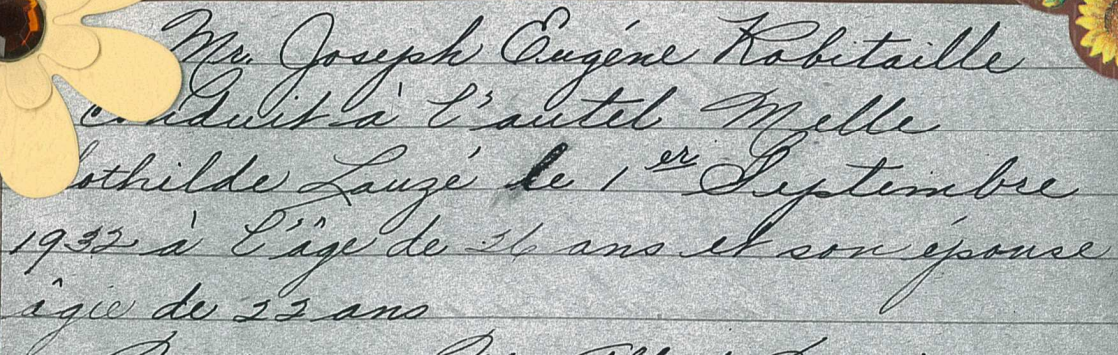 Mr. Joseph Eugéne Robitaille
Conduit à l'autel Melle
lothilde Lauzé le 1er Septembre
1932 à l'âge de 26 ans et son épouse
âgie de 22 ans